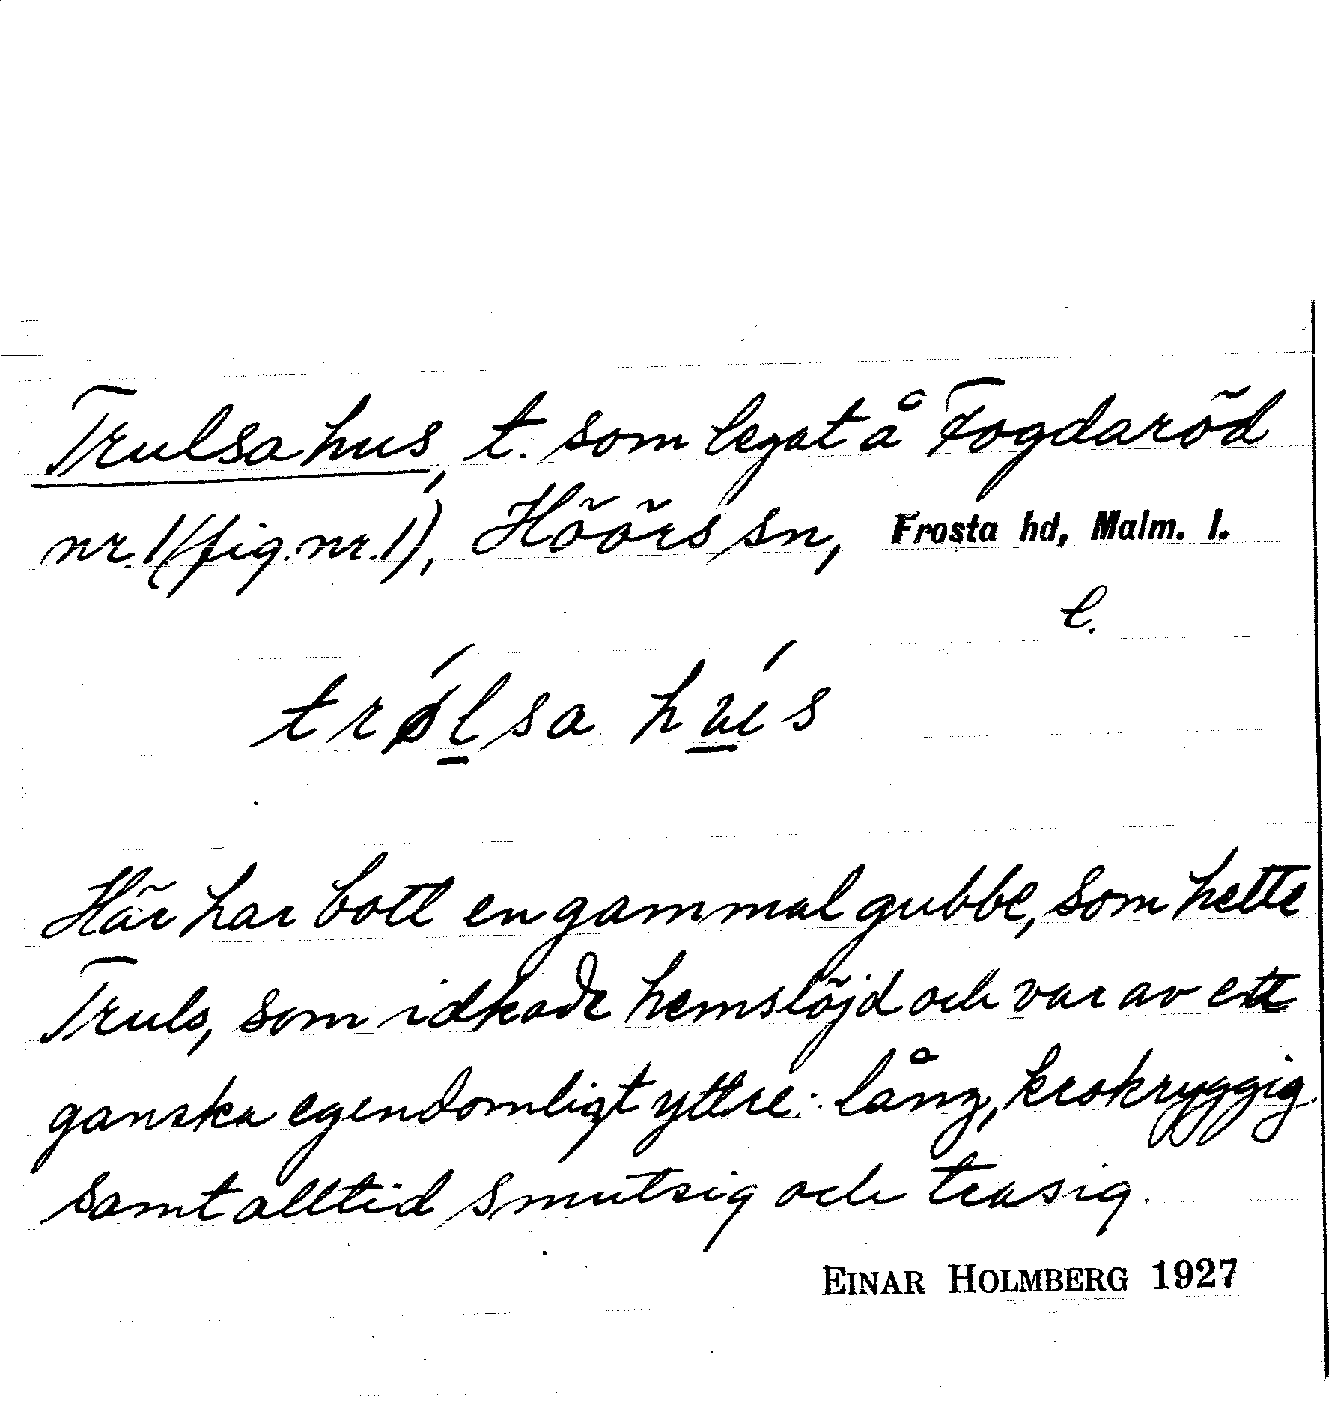 Trulsa hus, t. som legat å Fogdaröd
nr. 1 (fig. nr. 1), Höörs sn, Frosta hd, Malm. l.
l.
trǿlsa hús
Här har bott en gammal gubbe, som hette
Truls, som idkade hemslöjd och var av ett
ganska egendomligt yttre: lång, krokryggig
samt alltid smutsig och trasig.
EINAR HOLMBERG 1927